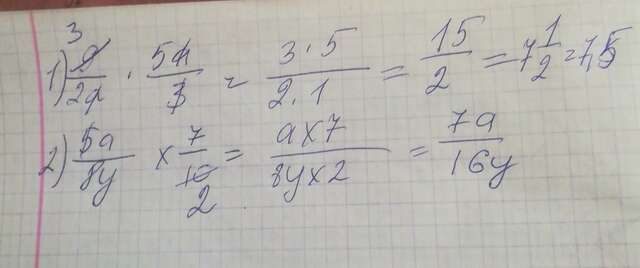 3
1) 9/2a · 5a/3 = 3·5/2·1 = 15/2 = 7 1/2 = 7,5
2) 5a/8y x 7/10 = ax7/8yx2 = 7a/16y
2